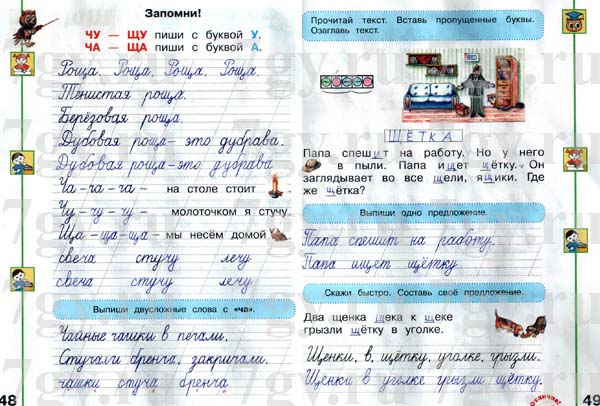 Запомни!
ЧУ — ЩУ пиши с буквой У,
ЧА — ЩА пиши с буквой А.
Роща. Роща. Роща. Роща.
Тенистая роща.
Берёзовая роща.
Дубовая роща - это дубрава.
Дубовая роща - это дубрава
Ча - ча - ча - на столе стоит
Чу - чу - чу - молоточком я стучу.
Ща - ща - ща - мы несём домой
свеча стучу лечу
свеча стучу лечу
Выпиши двусложные слова с «ча».
Чайные чашки в печали,
Стуча и бренча, закричали.
чашки стуча бренча
48
Прочитай текст. Вставь пропущенные буквы.
Озаглавь текст.
ЩЁТКА
Папа спешит на работу. Но у него
в пыли. Папа ищет щётку. Он
заглядывает во все щели, ящики. Где
же щётка?
Выпиши одно предложение.
Папа спешит на работу.
Папа ищет щётку
Скажи быстро. Составь своё предложение.
Два щенка щека к щеке
грызли щётку в уголке.
Щенки, в, щётку, уголке, грызли.
Щенки в уголке грызли щётку.
Отлично!
49
7gy.ru